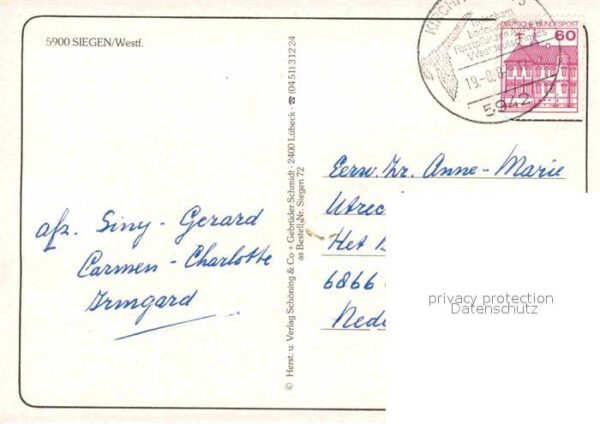 5900 SIEGEN/Westf.
DEUTSCHE BUNDESPOST
60
5942
afz. Siny - Gerard
Carmen - Charlotte
Irmgard
© Herst. u. Verlag Schöning & Co + Gebrüder Schmidt · 2400 Lübeck · ☎ (04 51) 3 12 24
as Bestell-Nr. Siegen 72
Eerw. Zr. Anne-Marie
Utrec
Het
6866
Nede
privacy protection
Datenschutz